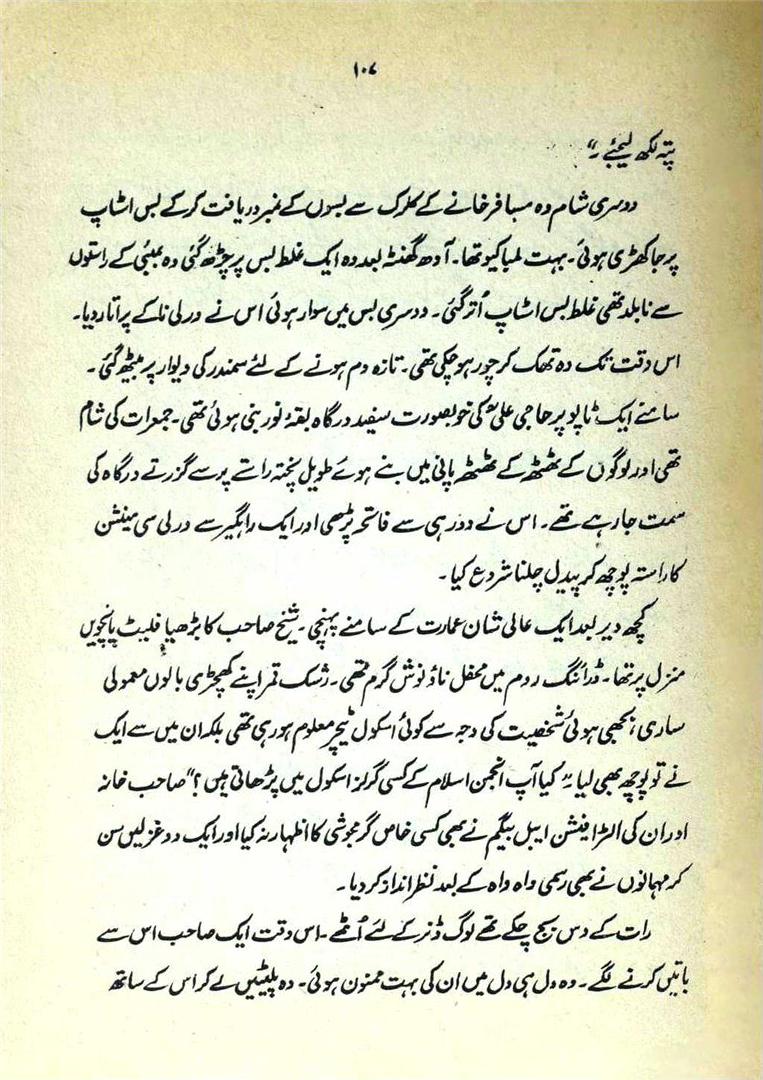 ۱۰۷
پتہ لکھ لیجئے۔"
دوسری شام وہ مسافر خانے کے کلرک سے بسوں کے نمبر دریافت کرکے بس اسٹاپ
پر جا کھڑی ہوئی۔ بہت لمبا کیو تھا۔ آدھ گھنٹہ بعد وہ ایک غلط بس پر چڑھ گئی وہ بمبئی کے راستوں
سے نابلد تھی غلط بس اسٹاپ اُتر گئی۔ دوسری بس میں سوار ہوئی اس نے ورلی ناکے پر اتار دیا۔
اس وقت تک وہ تھک کر چور ہوچکی تھی۔ تازہ دم ہونے کے لئے سمندر کی دیوار پر بیٹھ گئی۔
سامنے ایک ٹاپو پر حاجی علیؒ کی خوبصورت سفید درگاہ بقۂ نور بنی ہوئی تھی۔ جمعرات کی شام
تھی اور لوگوں کے ٹھٹھ کے ٹھٹھ پانی میں بنے ہوئے طویل پختہ راستے پر سے گزرتے درگاہ کی
سمت جارہے تھے۔ اس نے دور ہی سے فاتحہ پڑھی اور ایک راہگیر سے ورلی سی مینشن
کا راستہ پوچھ کر پیدل چلنا شروع کیا۔
کچھ دیر بعد ایک عالی شان عمارت کے سامنے پہنچی۔ شیخ صاحب کا بڑھیا فلیٹ پانچویں
منزل پر تھا۔ ڈرائنگ روم میں محفل ناؤ نوش گرم تھی۔ رشک قمر اپنے کھچڑی بالوں معمولی
ساری، بجھی ہوئی شخصیت کی وجہ سے کوئی اسکول ٹیچر معلوم ہو رہی تھی بلکہ ان میں سے ایک
نے تو پوچھ بھی لیا۔" کیا آپ انجمن اسلام کے کسی گرلز اسکول میں پڑھاتی ہیں؟" صاحب خانہ
اور ان کی الٹرا فیشن ایبل بیگم نے بھی کسی خاص گرمجوشی کا اظہار نہ کیا اور ایک دو غزلیں سن
کر مہمانوں نے بھی رسمی واہ واہ کے بعد نظر انداز کردیا۔
رات کے دس بج چکے تھے لوگ ڈنر کے لئے اُٹھے۔ اس وقت ایک صاحب اس سے
باتیں کرنے لگے۔ وہ دل ہی دل میں ان کی بہت ممنون ہوئی۔ وہ پلیٹیں لے کر اس کے ساتھ